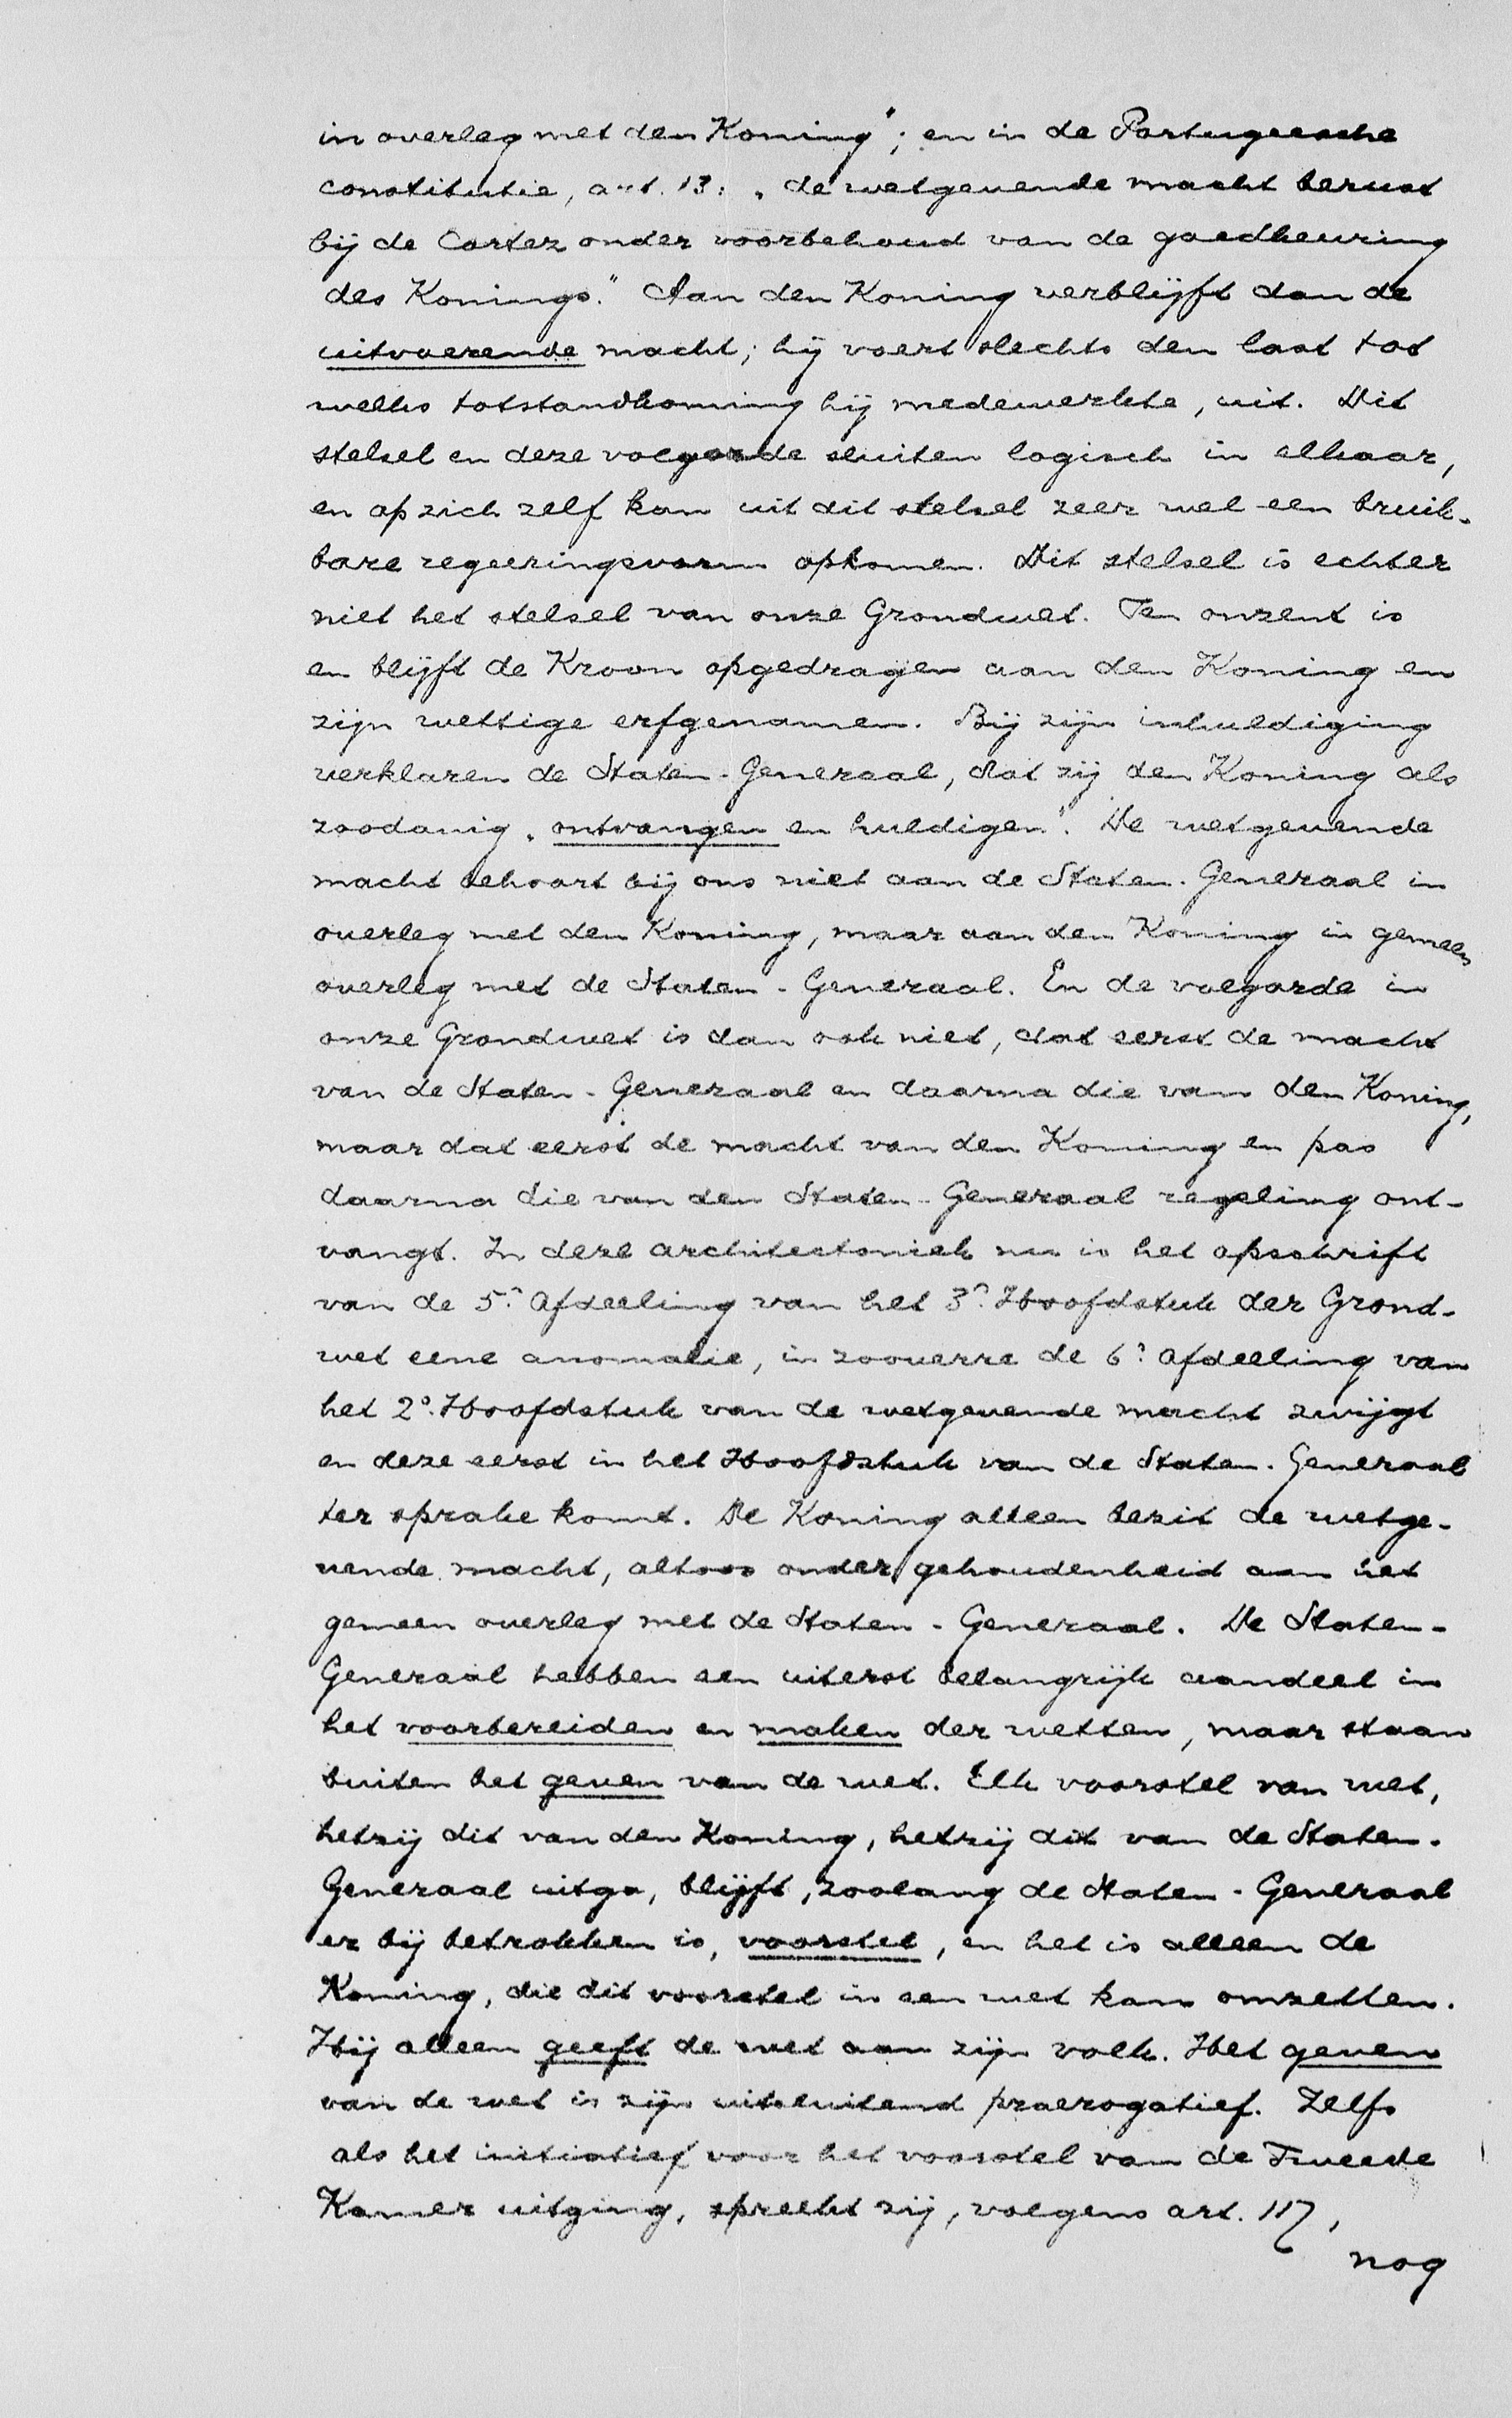 in overleg met den Koning"; en in de Portugeesche
constitutie, art. 13: „de wetgevende macht berust
bij de Cortez onder voorbehoud van de goedkeuring
des Konings." Aan den Koning verblijft dan de
uitvoerende macht; hij voert slechts den last tot
welks totstandkoming hij medewerkte, uit. Dit
stelsel en deze volgorde sluiten logisch in elkaar,
en op zich zelf kan uit dit stelsel zeer wel een bruik-
bare regeeringsvorm opkomen. Dit stelsel is echter
niet het stelsel van onze Grondwet. Ten onzent is
en blijft de Kroon opgedragen aan den Koning en
zijn wettige erfgenamen. Bij zijn inhuldiging
verklaren de Staten-Generaal, dat zij den Koning als
zoodanig „ontvangen en huldigen". De wetgevende
macht behoort bij ons niet aan de Staten-Generaal in
overleg met den Koning, maar aan den Koning in gemeen
overleg met de Staten-Generaal. En de volgorde in
onze Grondwet is dan ook niet, dat eerst de macht
van de Staten-Generaal en daarna die van den Koning,
maar dat eerst de macht van den Koning en pas
daarna die van den Staten-Generaal regeling ont-
vangt. In deze architectoniek nu is het opschrift
van de 5e Afdeeling van het 3e Hoofdstuk der Grond-
wet eene anomalie, in zooverre de 6e Afdeeling van
het 2e Hoofdstuk van de wetgevende macht zwijgt
en deze eerst in het Hoofdstuk van de Staten-Generaal
ter sprake komt. De Koning alleen bezit de wetge-
vende macht, altoos onder gehoudenheid aan het
gemeen overleg met de Staten-Generaal. De Staten-
Generaal hebben een uiterst belangrijk aandeel in
het voorbereiden en maken der wetten, maar staan
buiten het geven van de wet. Elk voorstel van wet,
hetzij dit van den Koning, hetzij dit van de Staten-
Generaal uitga, blijft, zoolang de Staten-Generaal
er bij betrokken is, voorstel, en het is alleen de
Koning, die dit voorstel in een wet kan omzetten.
Hij alleen geeft de wet aan zijn volk. Het geven
van de wet is zijn uitsluitend praerogatief. Zelfs
als het initiatief voor het voorstel van de Tweede
Kamer uitging, spreekt zij, volgens art. 117,
nog